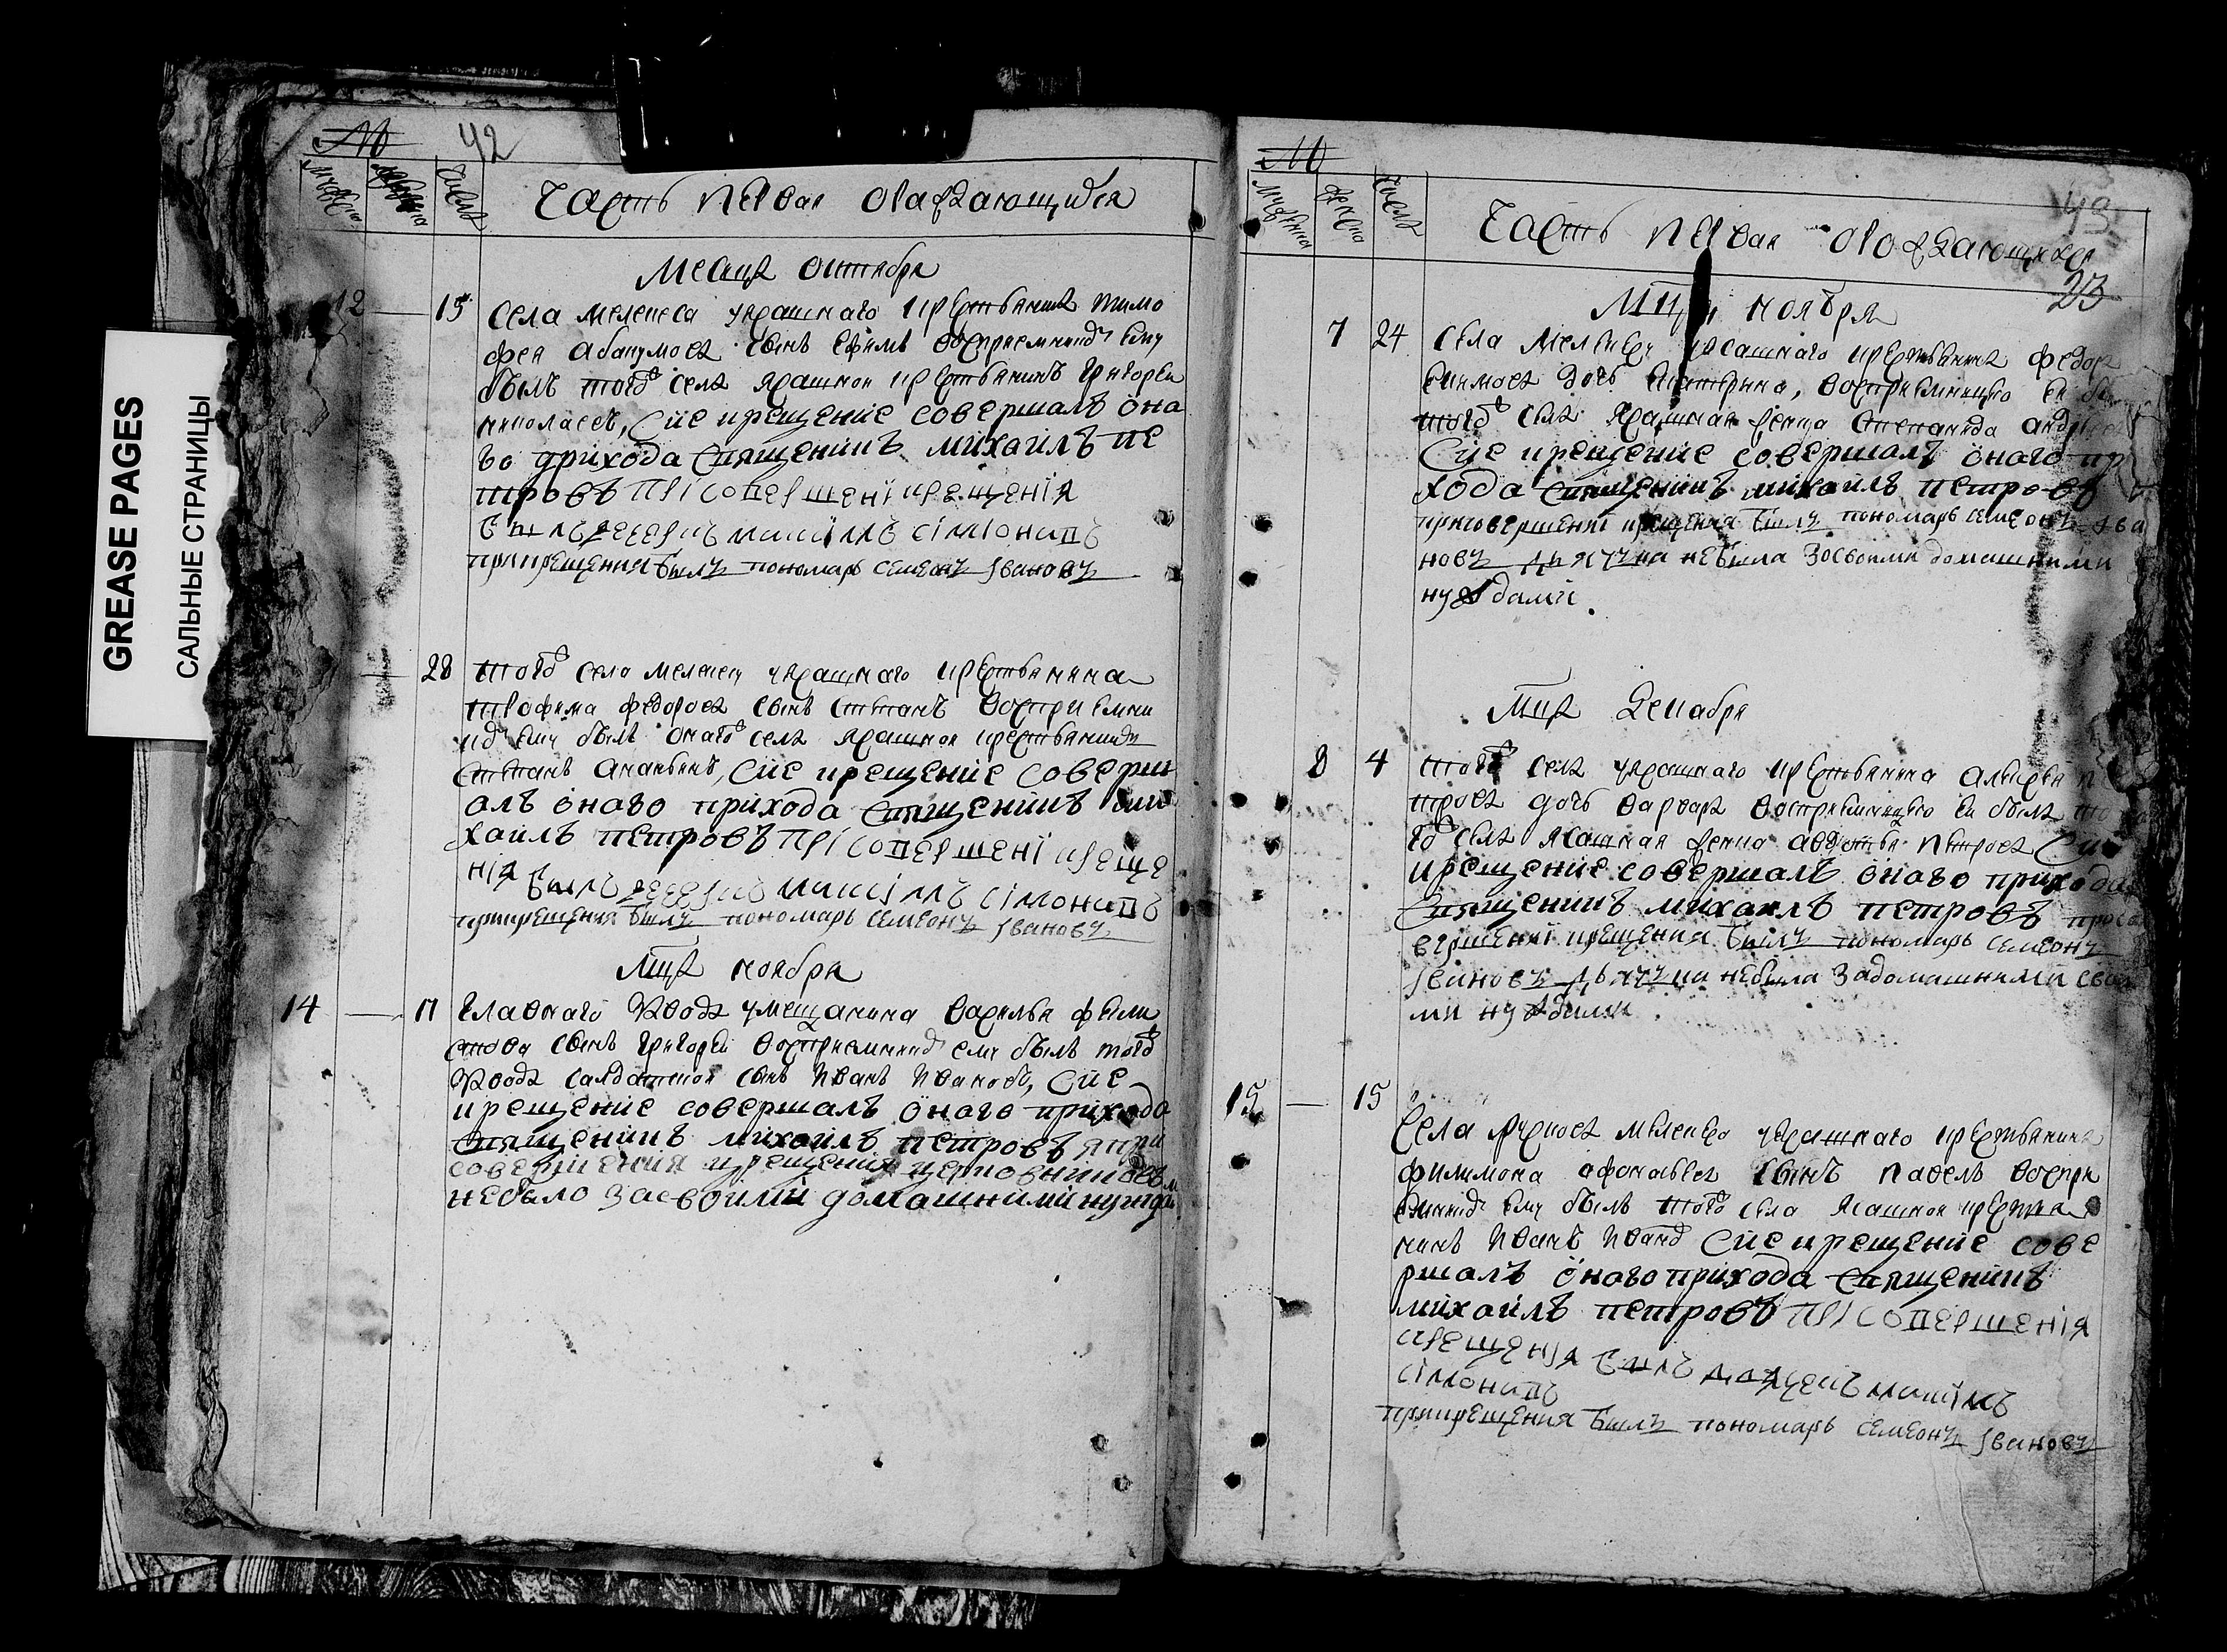 GREASE PAGES
САЛЬНЫЕ СТРАНИЦЫ
№ 42
мужеска женска числа
Часть первая ораждающихся
Месяца октября
12 — 15 Села Мелекеса у ясашнаго крестьянина Тимо
фея Абакумова сынъ Ефимъ восприемникъ ему
былъ того села ясашной крестьянинъ Григорей
Николаевъ, Сие крещение совершалъ она
го прихода священникъ михаилъ пе
тровъ прі совершені крещенія
былъ максімъ сімоновъ
при крещения былъ пономарь семеонъ Ивановъ
— 28 того села у ясашнаго крестьянина
Трофима Федорова сынъ Степанъ восприемни
къ ему былъ онаго села ясашной крестьянинъ
Степанъ Ананьинъ, Сие крещение соверш
алъ онаго прихода священникъ ми
хаилъ петровъ прі совершені креще
нія былъ максімъ сімоновъ
при крещения былъ пономарь семеонъ Ивановъ
Мца ноября
14 — 17 завода у мещанина Василья
сынъ Григорей восприемникъ ему былъ того
завода салдатской сынъ Иванъ Ивановъ, Сие
крещение совершалъ онаго прихода
священникъ михаилъ петровъ а при
совершения крещения церковниковъ
небыло за своими домашними нужда
№ 43
мужеска женска числа
Часть первая ораждающихся
23
Мца ноября
7 24 Села у ясашнаго крестьянина Федора
Екимова дочь Катерина, восприемницею ей
того села ясашная женка Степанида
Сие крещение совершалъ онаго при
хода священникъ михаилъ петровъ
при совершени крещения былъ пономарь семеонъ Ива
новъ дьячка небыла за своими домашними
нуждами.
Мца Декабря
8 4 того села у ясашнаго крестьянина Алексея
дочь Варвара восприемницею ей была
го села ясашная женка Авдотья Петрова Сие
крещение совершалъ онаго прихода
священникъ михаилъ петровъ при со
вершені крещения былъ пономарь семеонъ
Ивановъ дьячка небыла за домашними свои
ми нуждами.
15 — 15
Села у ясашнаго крестьянина
Филимона Афонасьева сынъ Павелъ воспри
емникъ ему былъ того села ясашной крестья
нинъ Иванъ Сие крещение сове
ршалъ онаго прихода священникъ
михаилъ петровъ прі совершенія
крещенія былъ максімъ
сімоновъ
при крещения былъ пономарь семеонъ Ивановъ